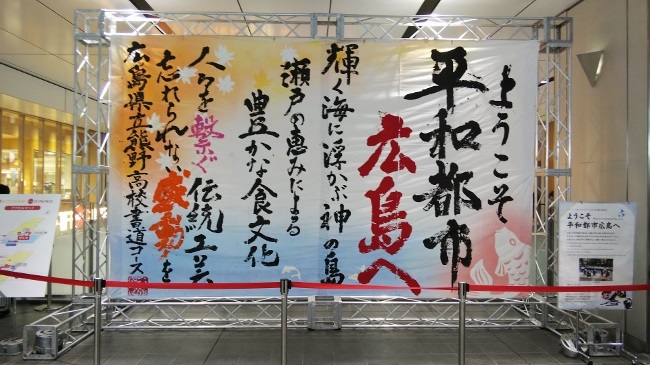 ようこそ
平和都市
広島へ
輝く海に浮かぶ神の島
瀬戸の恵みによる
豊かな食文化
人々を繋ぐ伝統工芸
忘れられない感動を
広島県立熊野高校書道コース
ようこそ
平和都市広島へ